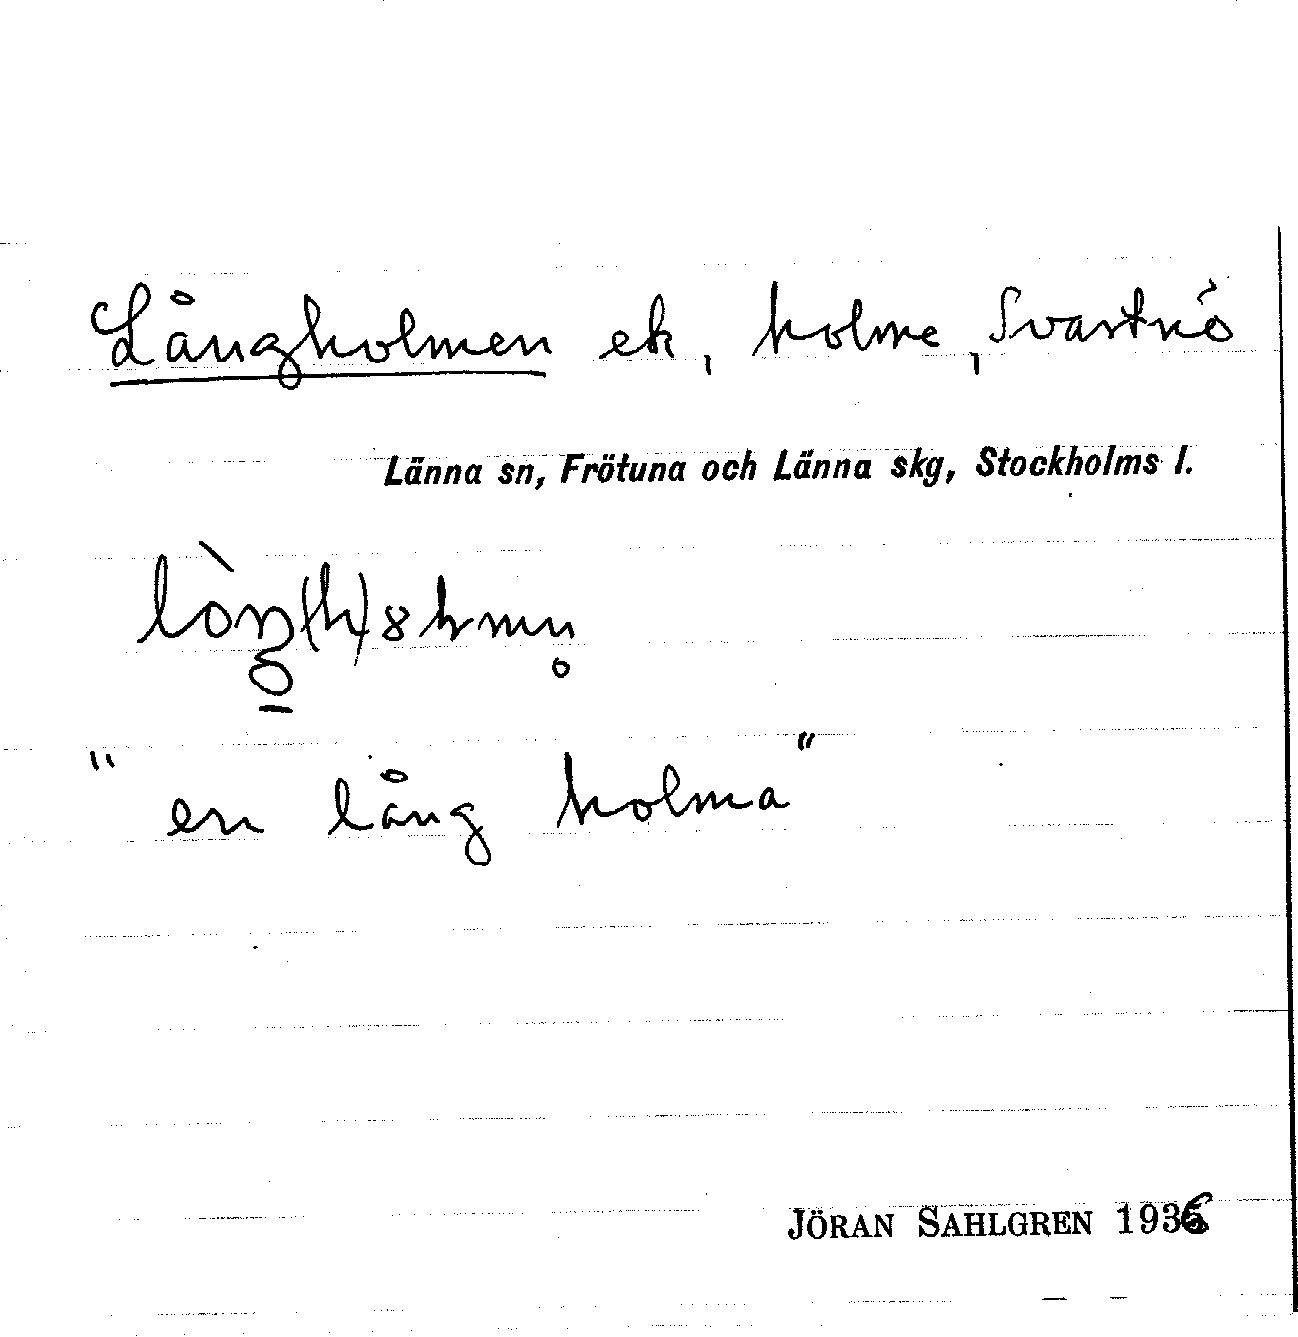 Långholmen ek, holme, Svartnö
Länna sn, Frötuna och Länna skg, Stockholms l.
"en lång holma"
JÖRAN SAHLGREN 1936